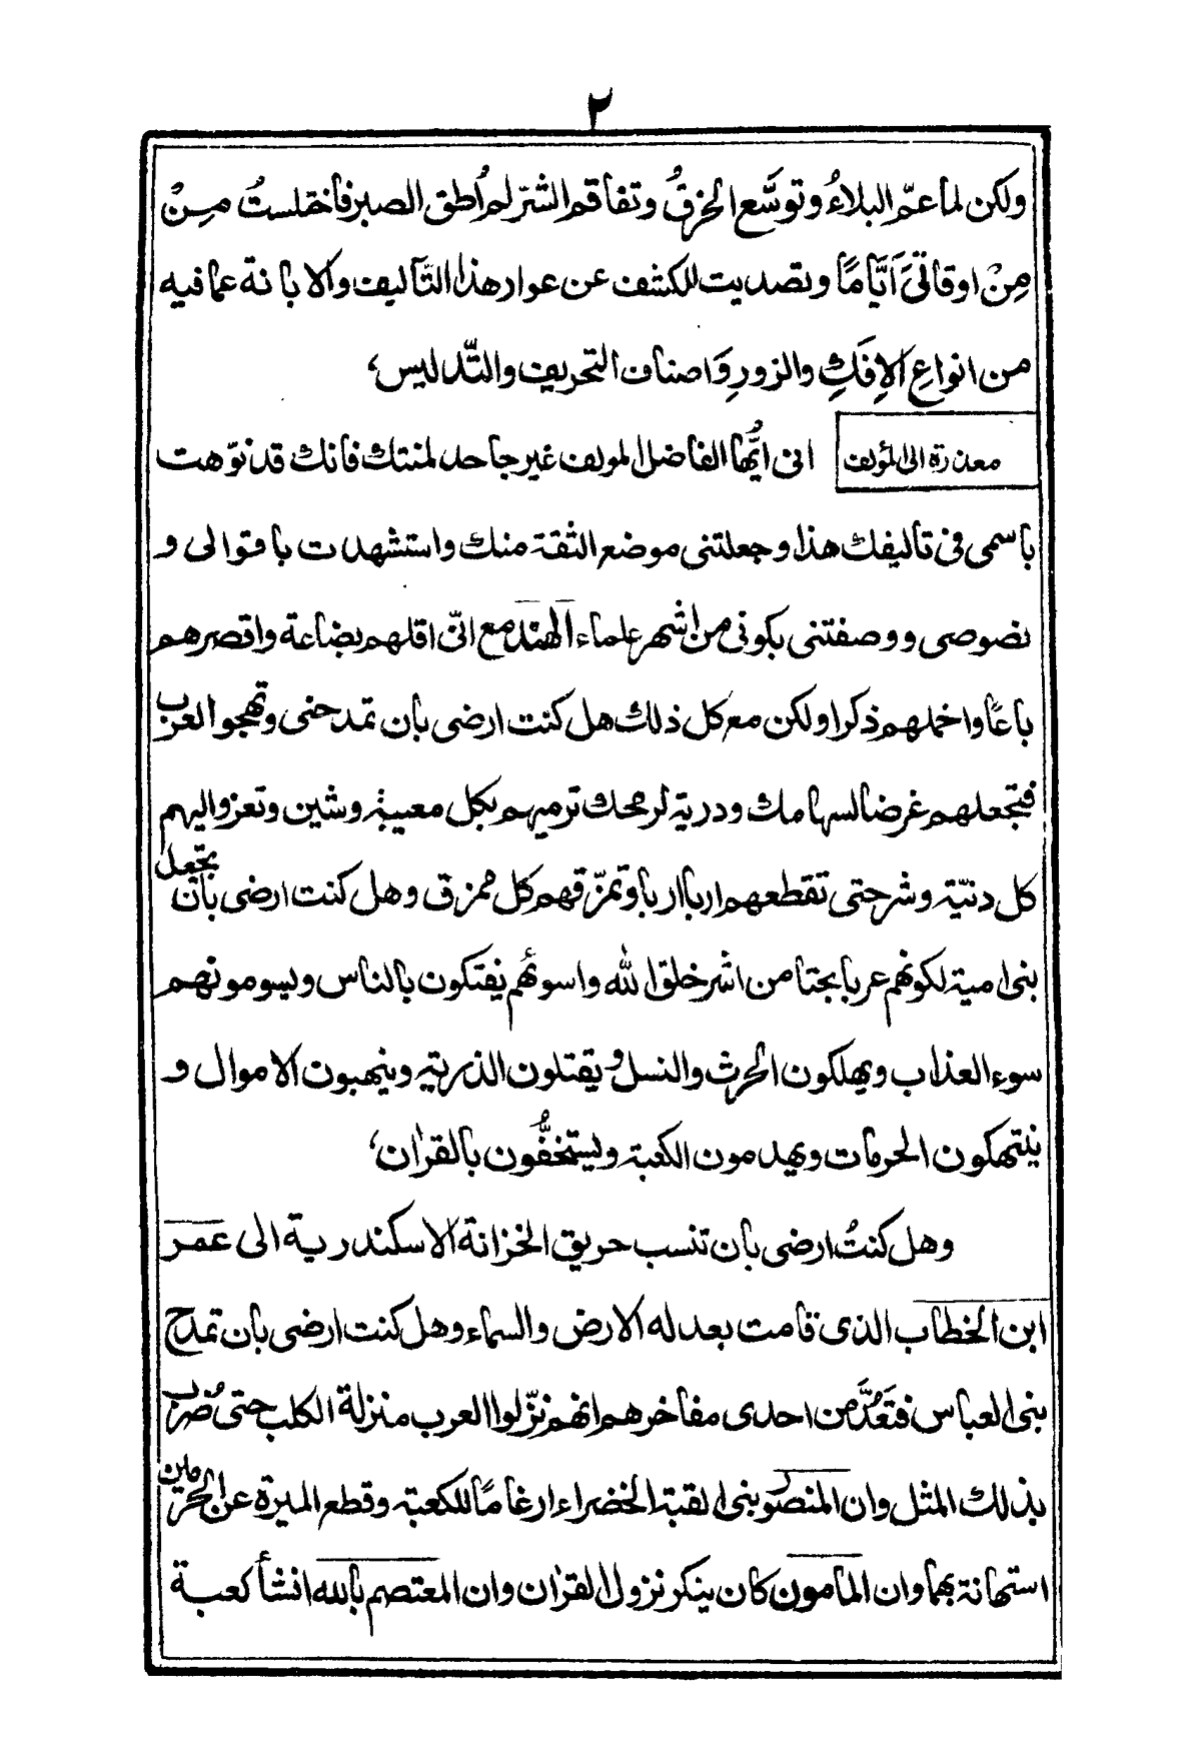 ٢
ولكن لما عمّ البلاءُ وتوسَّع الخرقُ وتفاقم الشرّ لم أُطق الصبر فأختلستُ مِنْ
مِنْ اوقاتى اَيَّامًا وتصديت للكشف عن عوار هذا التّاليف والابانة عما فيه
من انواعِ الاِفَكِ والزورِ وَاصناف التحريف والتّدليس،
معذرة الى المؤلف انى ايُّها الفاضل المولف غير جاحد لمنتك فانك قد نوّهت
باسمى فى تاليفك هذا وجعلتنى موضع الثقة منك واستشهدت باقوالى و
نصوصى ووصفتنى بكونى من اشهر علماء الهند مع انّى اقلهم بضاعة واقصرهم
باعًا واخملهم ذكرا ولكن مع كل ذلك هل كنت ارضى بان تمدحنى وتهجو العرب
فتجعلهم غرضا لسهامك ودرية لرمحك ترميهم بكل معيبة وشين وتعزو اليهم
كل دنيّة وشر حتى تقطعهم اربا اربا وتمزّقهم كل ممزق وهل كنت ارضى بان تجعل
بنى امية لكونهم عربا بحتا من اشر خلق الله واسوئهم يفتكون بالناس ويسومونهم
سوء العذاب ويهلكون الحرث والنسل ويقتلون الذرية وينهبون الاموال و
ينتهكون الحرمات ويهدمون الكعبة ويستخفُّون بالقرآن،
وهل كنتُ ارضى بان تنسب حريق الخزانة الاسكندرية الى عمر
ابن الخطاب الذى قامت بعدله الارض والسماء وهل كنت ارضى بان تمدح
بنى العباس فتعُدَّ من احدى مفاخرهم انهم نزّلوا العرب منزلة الكلب حتى ضُرب
بذلك المثل وان المنصور بنى القبة الخضراء ارغامًا للكعبة وقطع الميرة عن الحرمين
استهانة بهما وان المأمون كان ينكر نزول القرآن وان المعتصم بالله انشأ كعبة